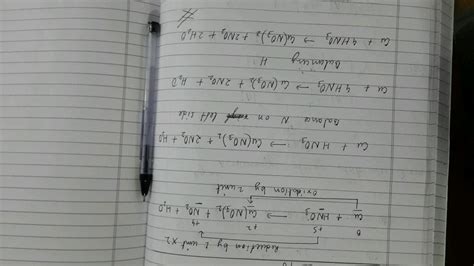 Reduction by 1 unit × 2
0 +5 +2 +4
Cu + HNO3 → Cu(NO3)2 + NO2 + H2O
Oxidation by 2 unit
Cu + HNO3 → Cu(NO3)2 + 2NO2 + H2O
Balance N on left side
Cu + 4HNO3 → Cu(NO3)2 + 2NO2 + H2O
Balancing H
Cu + 4HNO3 → Cu(NO3)2 + 2NO2 + 2H2O